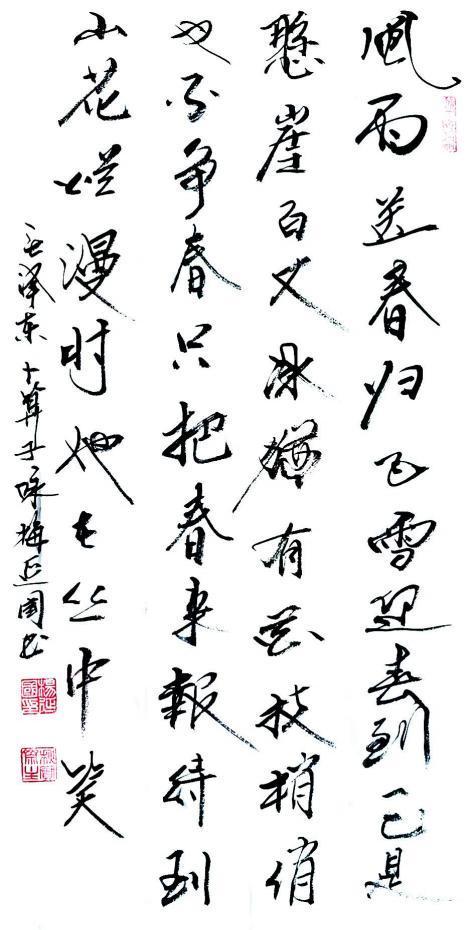 风雨送春归飞雪迎春到已是
悬崖百丈冰犹有花枝梢俏
也不争春只把春来報待到
山花烂漫时她在丛中笑
毛泽东卜算子咏梅延国书
楊延國印